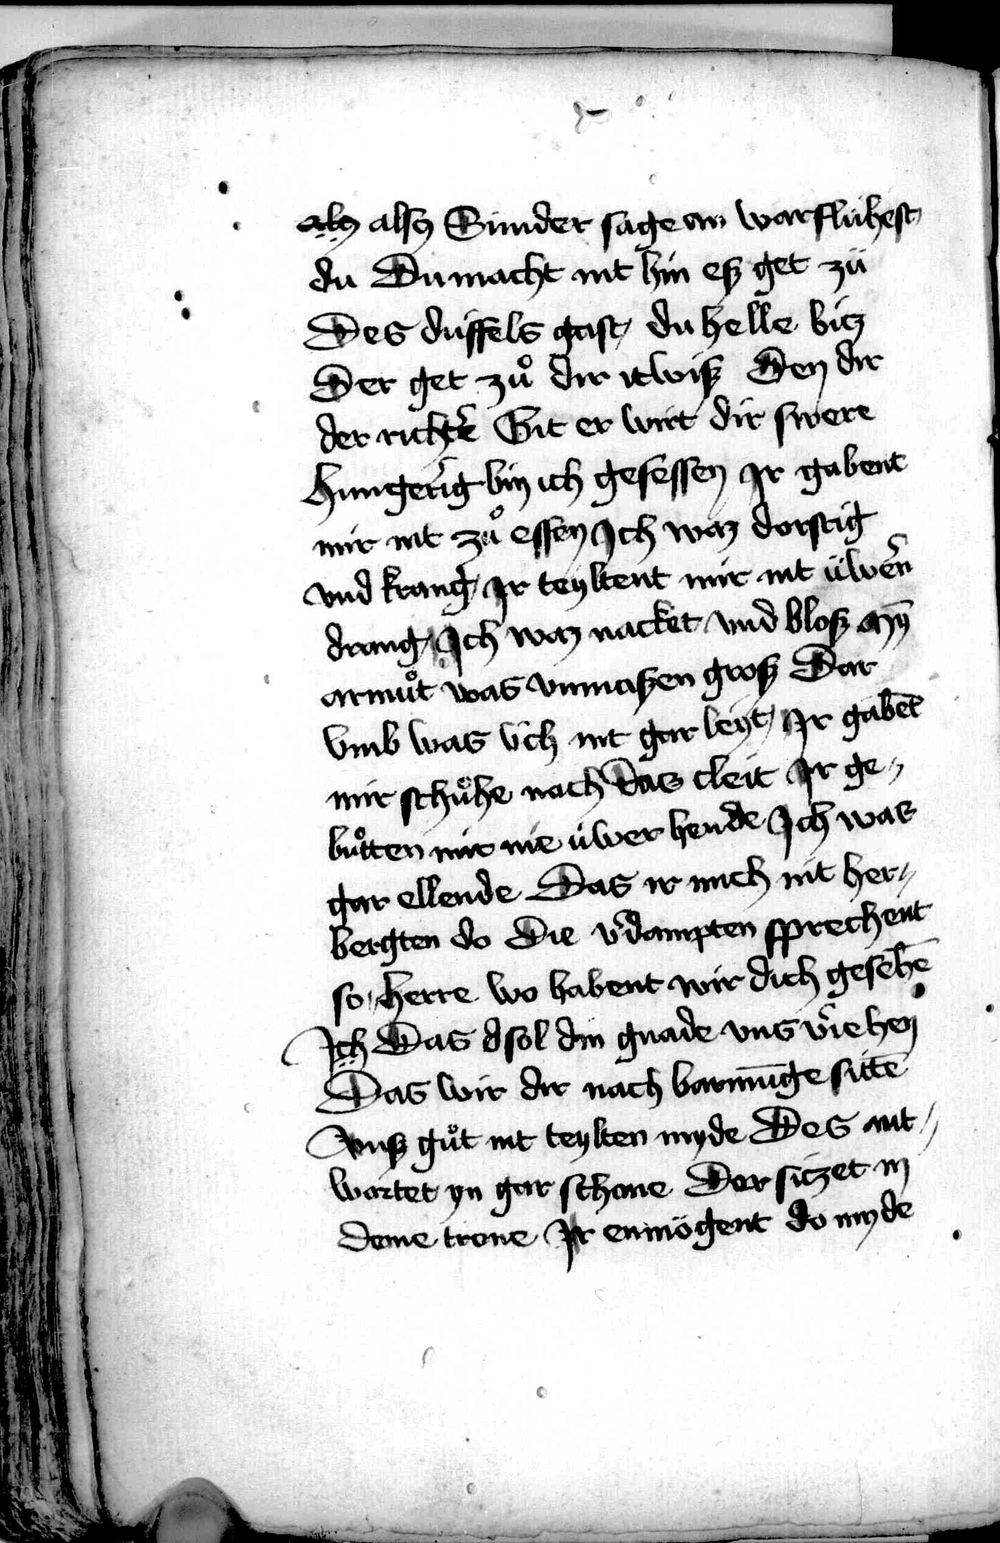 als also Sunder sage an war fluhest
du Du macht nit hin eß get zü
Des düffels gast / du helle bitz
Der get zuͦ dir itwiß Den dir
der richter̄ Git er wirt dir swere
Hungerig bin ich gesessen Ir gabent
mir nit zuͦ essen Ich waz dorstig
vnd krang / Ir teyltent mir nit üwern̄
drang / Ich waz nacket vnd bloß Myn̄
armuͦt was vnmaßen groß Dar
vmb was üch nit gar leyt / Ir gabēt
mir schuͦhe nach das cleit Ir ge„
buͦtten mir nie üwer hende Ich was
gar ellende Das ir mich nit her„
bergten do Die v̄dampten sprechent
so / herre wo habent wir dich gesehē
Ich Das dsol din gnade vns v̄iehen
Das wir dir nach barmūge sittē
Vnß guͦt nit teylten myde Des ant„
wortet yn gar schone Der sitzet in
deme trone Ir enmögent do myde